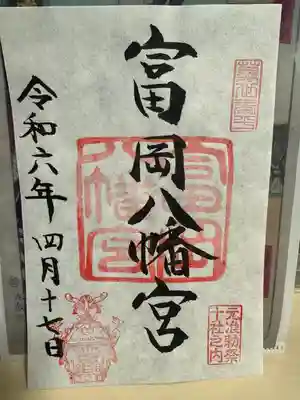 富岡八幡宮
令和六年 四月十七日
富岡
八幡宮
元准勅祭
十社之内